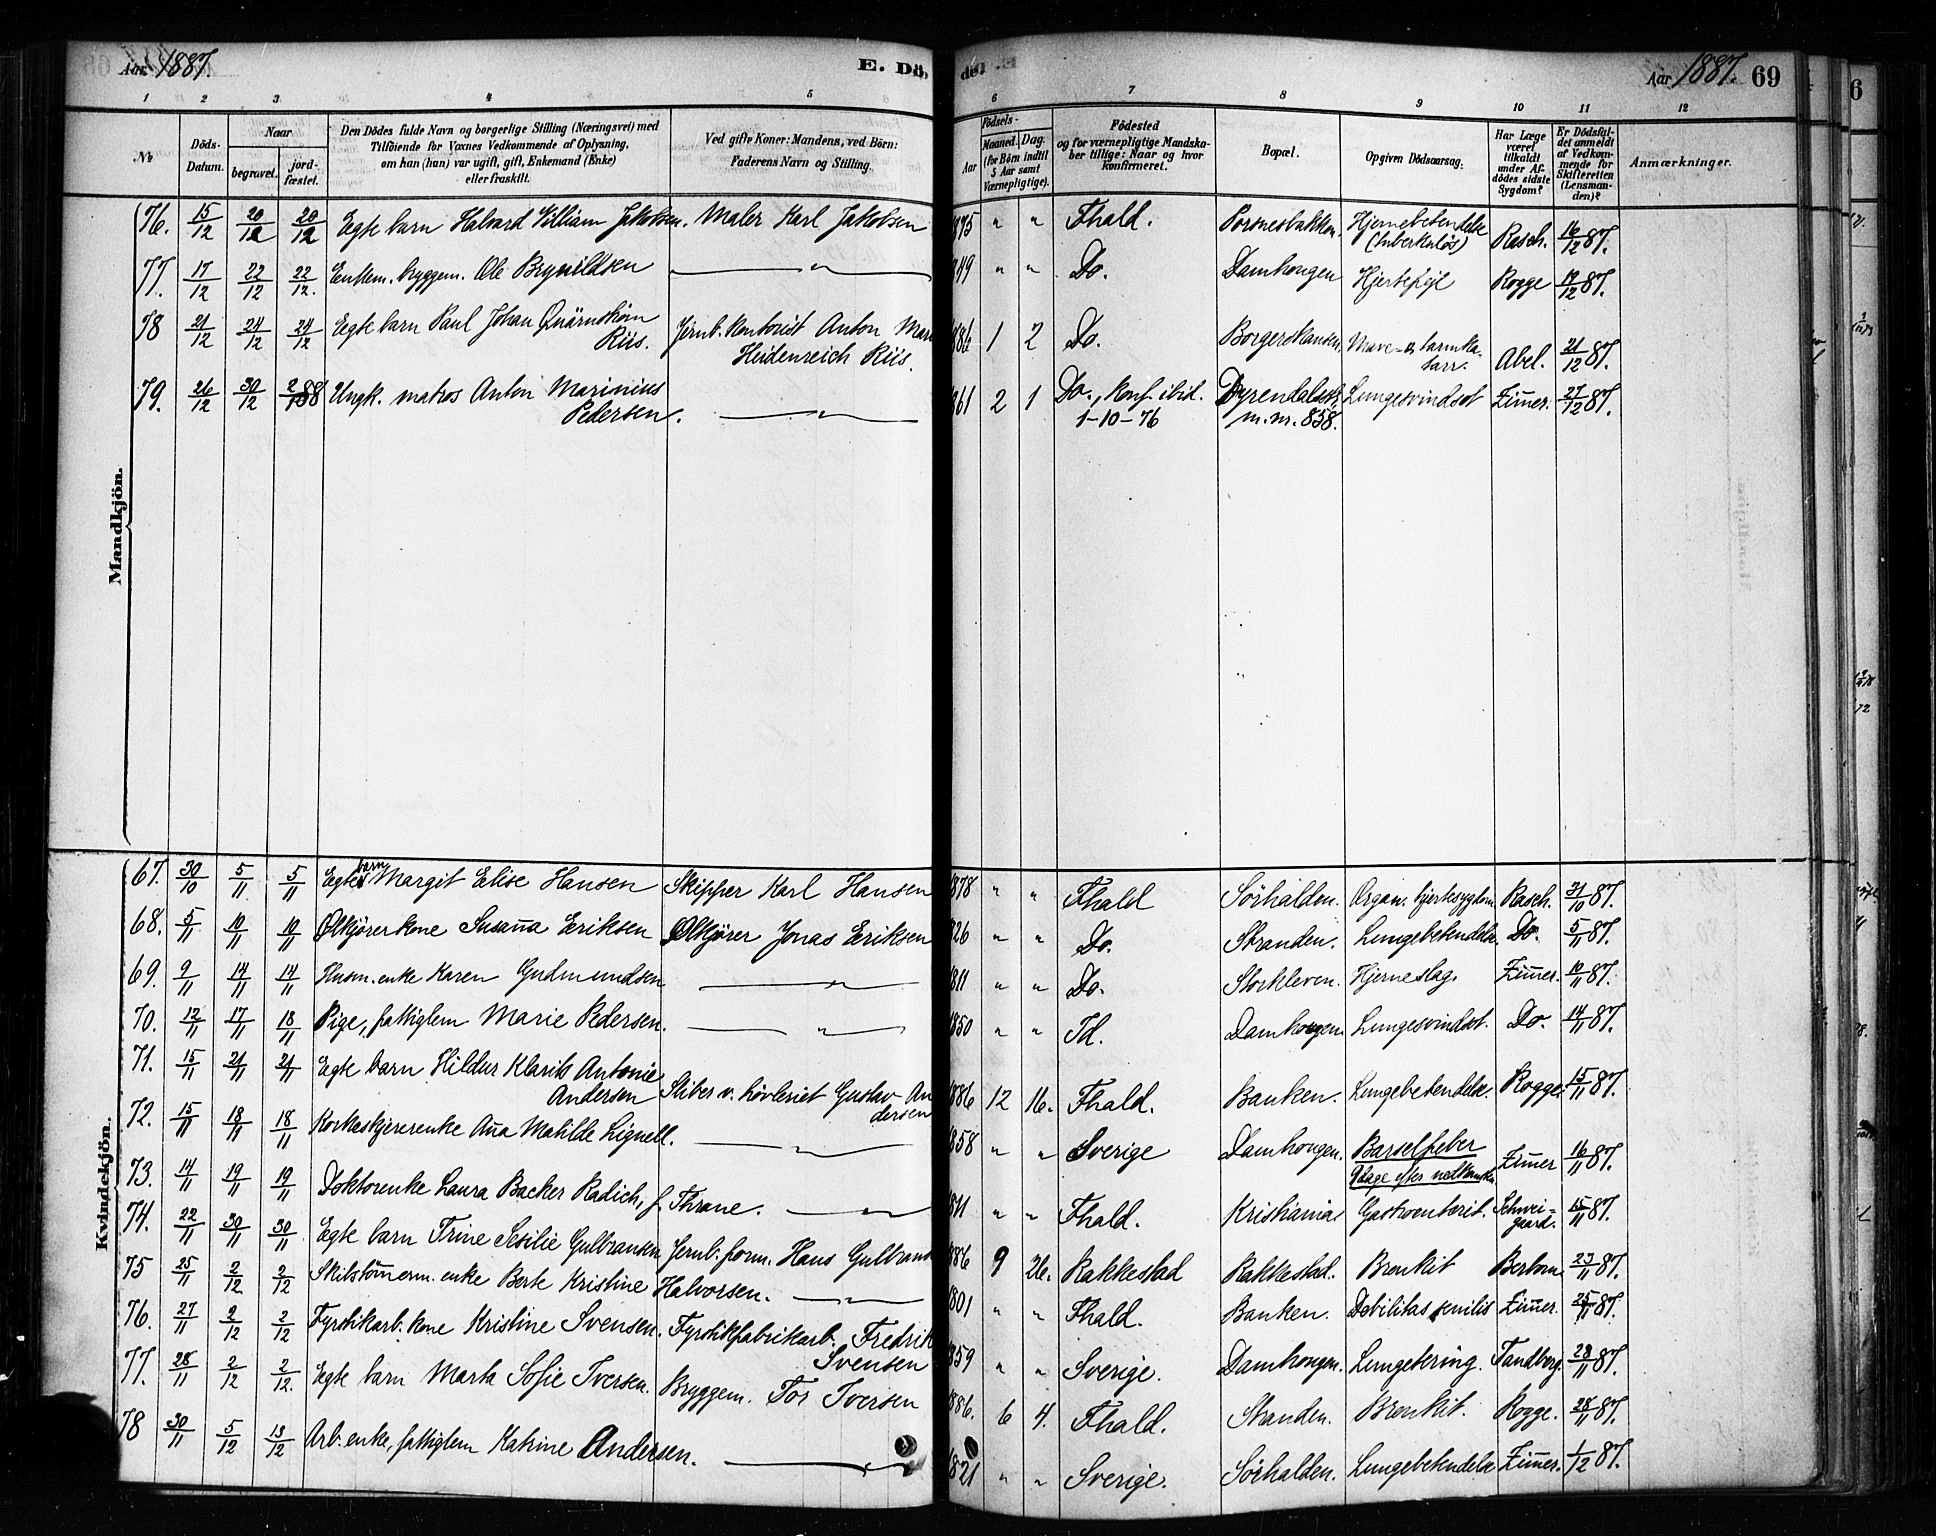 Aar 1887. E. Dö-
1 2 3 4 5
No Döds-Datum. Naar begravet. jord-fæstet. Den Dödes fulde Navn og borgerlige Stilling (Næringsvei) med Tilföiende for Voxnes Vedkommende af Oplysning, om han (hun) var ugift, gift, Enkemand (Enke) eller fraskilt. Ved gifte Koner: Mandens, ved Börn: Faderens Navn og Stilling.
Mandkjön.
76. 15/12 20/12 20/12 Egte barn Halvard William Jakobsen. Maler Karl Jakobsen
77. 17/12 22/12 22/12. Enkem. bryggem. Ole Brynildsen — " —
78 21/12 24/12 24/12 Egte barn Paul Johan Quärnström Riis. Jernb. kontorist Anton Mari
Heidenreich Riis.
79. 26/12 30/12 2/1 88 Ungk. matros Anton Marinius
Pedersen. — " —
Kvindekjön.
67. 30/10 5/11 5/11 Egte barn Margit Elise Hansen Skipper Karl Hansen
68. 5/11 10/11 10/11 Ølkjörerkone Susanna Eriksen Ølkjörer Jonas Eriksen
69. 9/11 14/11 14/11 Husm. enke Karen Gudmundsen — " —
70. 12/11 17/11 18/11 Pige, fattiglem Marie Pedersen. — " —
71. 15/11 21/11 21/11 Egte barn Hildur Klarits Antonie
Andersen Skiber v. hövleriet Gustav An
dersen
72. 15/11 18/11 18/11 Korkeskjererenke Anna Matilde Lignell. — " —
73. 14/11 19/11 19/11 Doktorenke Laura Backer Radich, f. Thrane. — " —
74. 22/11 30/11 30/11 Egte barn Trine Sesilie Gulbransen Jernb. form. Hans Gulbrans
75 25/11 2/12 2/12 Skibstömerm. enke Berte Kristine Halvorsen. — " —
76. 27/11 2/12 2/12 Fyrstikarb. kone Kristine Svensen. Fyrstikfabrikarb. Fredrik
Svensen
77. 28/11 2/12 2/12. Egte barn Marta Sofie Iversen. Bryggem. Tor Iversen
78 30/11 5/12 13/12 Arb. enke, fattiglem Katrine Andersen. —
de. Aar 1887. 69
6 7 8 9 10 11 12
Födsels- Aar Maaned. Dag. (for Börn indtil 5 Aar samt Værnepligtige). Födested og for værnepligtige Mandskaber tillige: Naar og hvor konfirmeret. Bopæl. Opgiven Dödsaarsag. Har Læge været tilkaldt under Afdödes sidste Sygdom? Er Dödsfaldet anmeldt af Vedkommende for Skifteretten (Lensmanden)? Anmærkninger.
1875 " " Fhald. Porsnesbakken. Hjernebetendelse
(tuberkulös) Rasch. 16/12 87.
849 " " Do. Damhougen Hjertefejl Rogge 19/12 87.
1886 1 2 Do. Borgerskansen. Mave- o. tarmka-
tarr. Abel. 21/12 87.
1861 2 1 Do., Konf. ibid. Dyrendalsstr. Lungesvindsot Zimer. 27/12 87.
1-10-76 m. nr. 858.
1878 " " Fhald Sörhalden. Organ. hjertesygdom Rasch. 31/10 87.
826 " " Do. Stranden. Lungebetendelse Do. 5/11 87.
1811 " " Do. Storkleven. Hjerneslag. Zimer. 10/11 87.
1850 " " Id. Damhougen. Lungesvindsot. Do. 14/11 87.
1886 12 16. Fhald. Banken. Lungebetendelse. Rogge. 15/11 87.
1858 " " Sverige Damhougen. Barselfeber
9 dage efter nedkomsten Zimer 16/11 87.
1811 " " Fhald. Kristiania. Gastroenterit. Schwei-
gaard. 15/11 87.
886 9 26. Rakkestad Rakkestad. Bronkit Berbom. 23/11 87.
1801 " " Fhald. Banken. Debilitas senilis Zimer. 25/11 87.
859 " " Sverige. Damhougen. Lungetering. Tandberg. 28/11 87.
1886. 6 4. Fhald. Stranden. Bronkit. Rogge. 28/11 87.
1821 " " Sverige. Sörhalden. Lungebetendelse Zimer. 1/12 87.